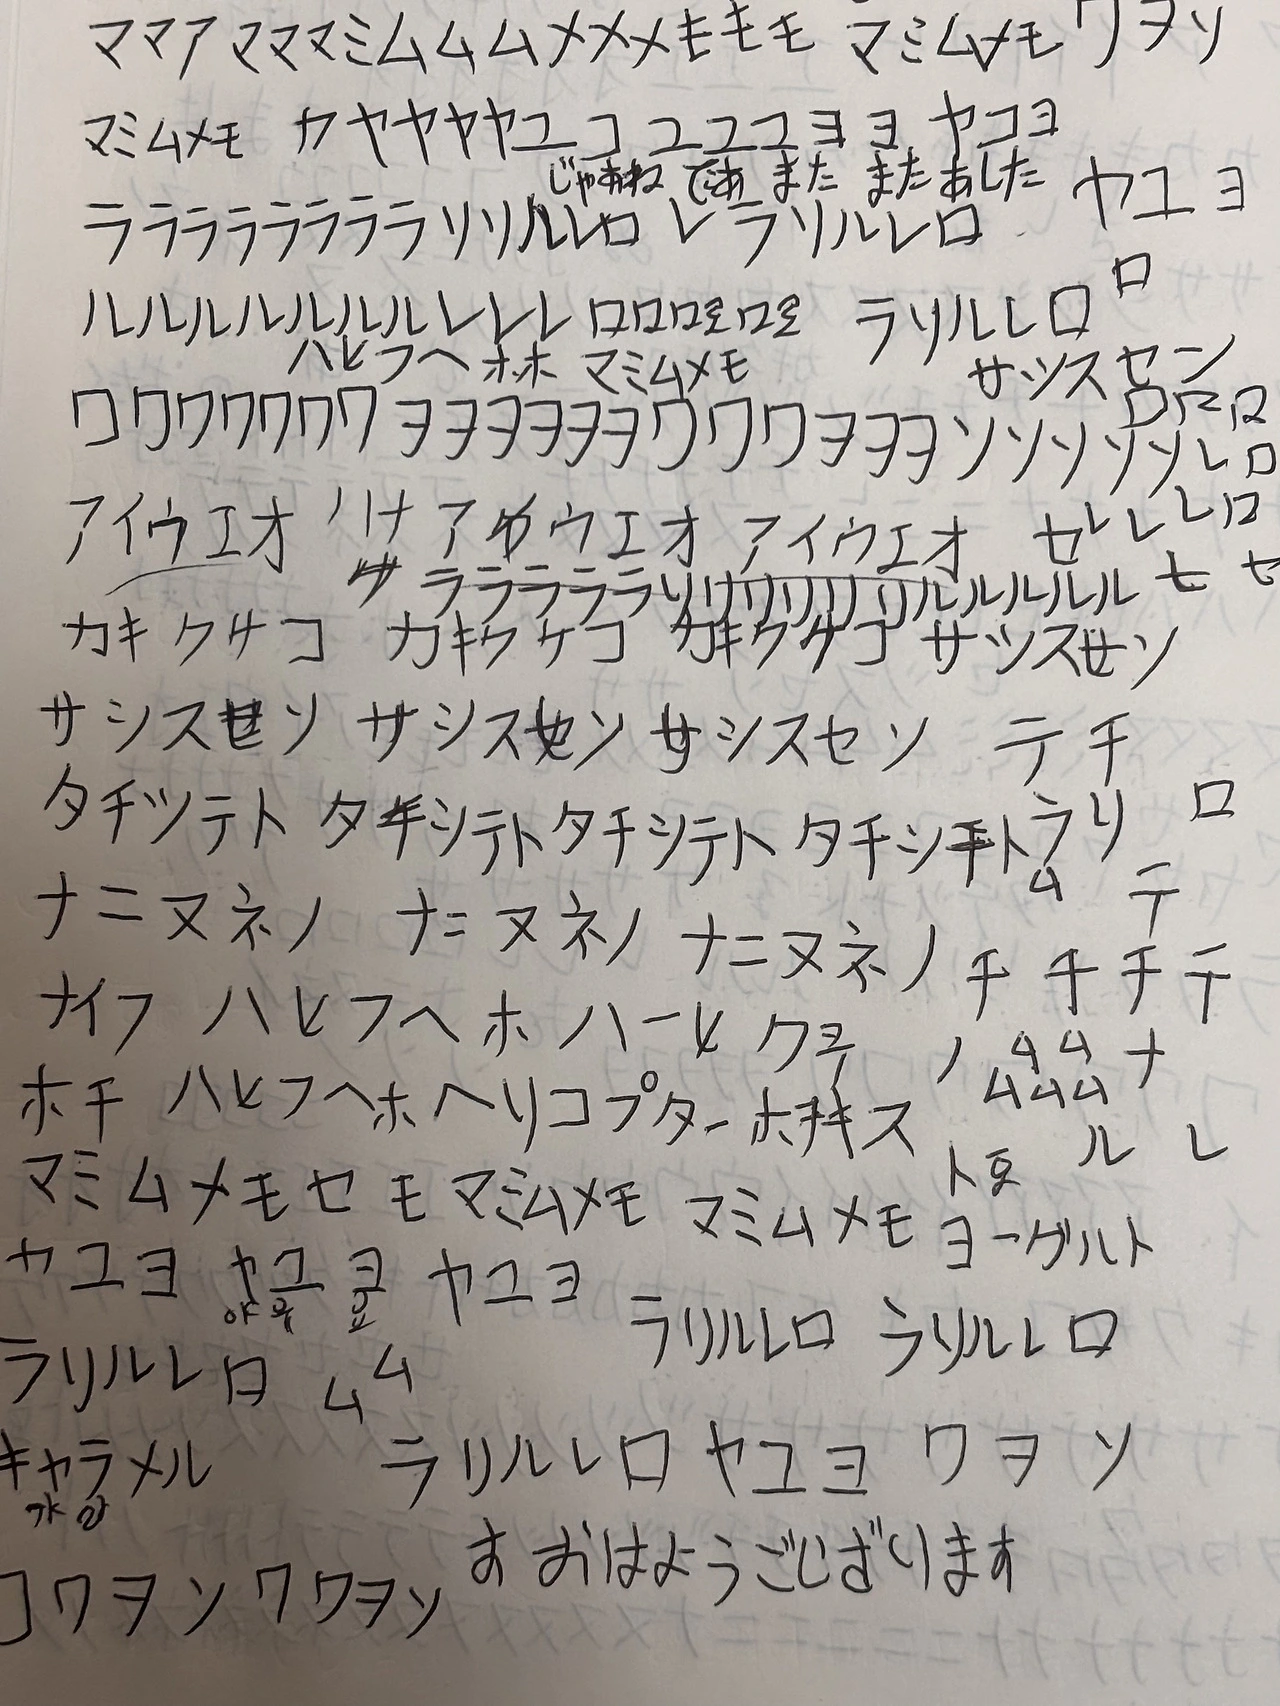 ママアマママミムムムメメメモモモ マミムメモ ワヲン
マミムメモ カヤヤヤヤユコユユユヨヨ ヤコヨ
じゃあね であ また またあした ヤユヨ
ララララララララリリルレロレラリルレロ
ルルルルルルルレレレロロロ로ロ로 ラリルレロロ
ハヒフヘホホ マミムメモ サツスセン
コワワワワワワヲヲヲヲヲヲワワワヲヲヲソソソソソレロ
アイウエオ ハナ アカウエオ アイウエオ ゼレレレロ
サ ラララララリリワリリリリルルルルル セセ
カキクケコ カキクケコ カキクケコ サツスセソ
サシスセソ サシスセソ サシスセソ テチ
タチツテト タチシテトタチシテト タチシテトラリ ロ
ム テ
ナニヌネノ ナニヌネノ ナニヌネノ チチチテ
ナイフ ハヒフヘホ ハーヒ クヲ ノ ムム ナ
ムムム
ホチ ハヒフヘホ ヘリコプター ホチキス
ト묘 ルレ
マミムメモセモマミムメモ マミムメモ ヨーグルト
ヤユヨ ヤユヨ ヤユヨ
야 유 요
ラリルレロ ラリルレロ
ラリルレロ ムム
キャラメル ラリルレロ ヤユヨ ワヲン
す おはようございります
コワヲンワワヲン